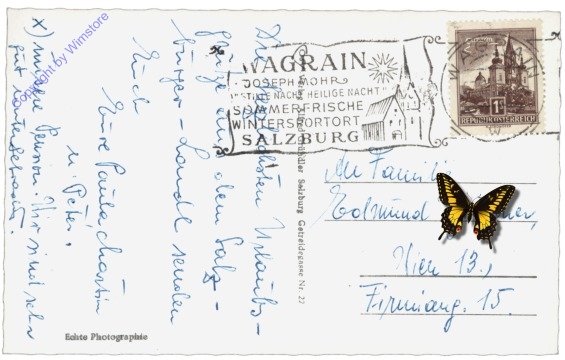 Die herzlichsten Urlaubs-
grüße aus dem Salz-
burger-Landl senden
Euch
Eure Paula, Martin
u. Peter.
x) unsere Pension. Wir sind sehr
gut untergebracht.
Copyright by Wimstore
WAGRAIN
JOSEPH MOHR
"STILLE NACHT HEILIGE NACHT"
SOMMERFRISCHE
WINTERSPORTORT
SALZBURG
REPUBLIK ÖSTERREICH
An Familie
Edmund
Wien 13.,
Firmiang. 15.
Salzburg Getreidegasse Nr. 22
Echte Photographie